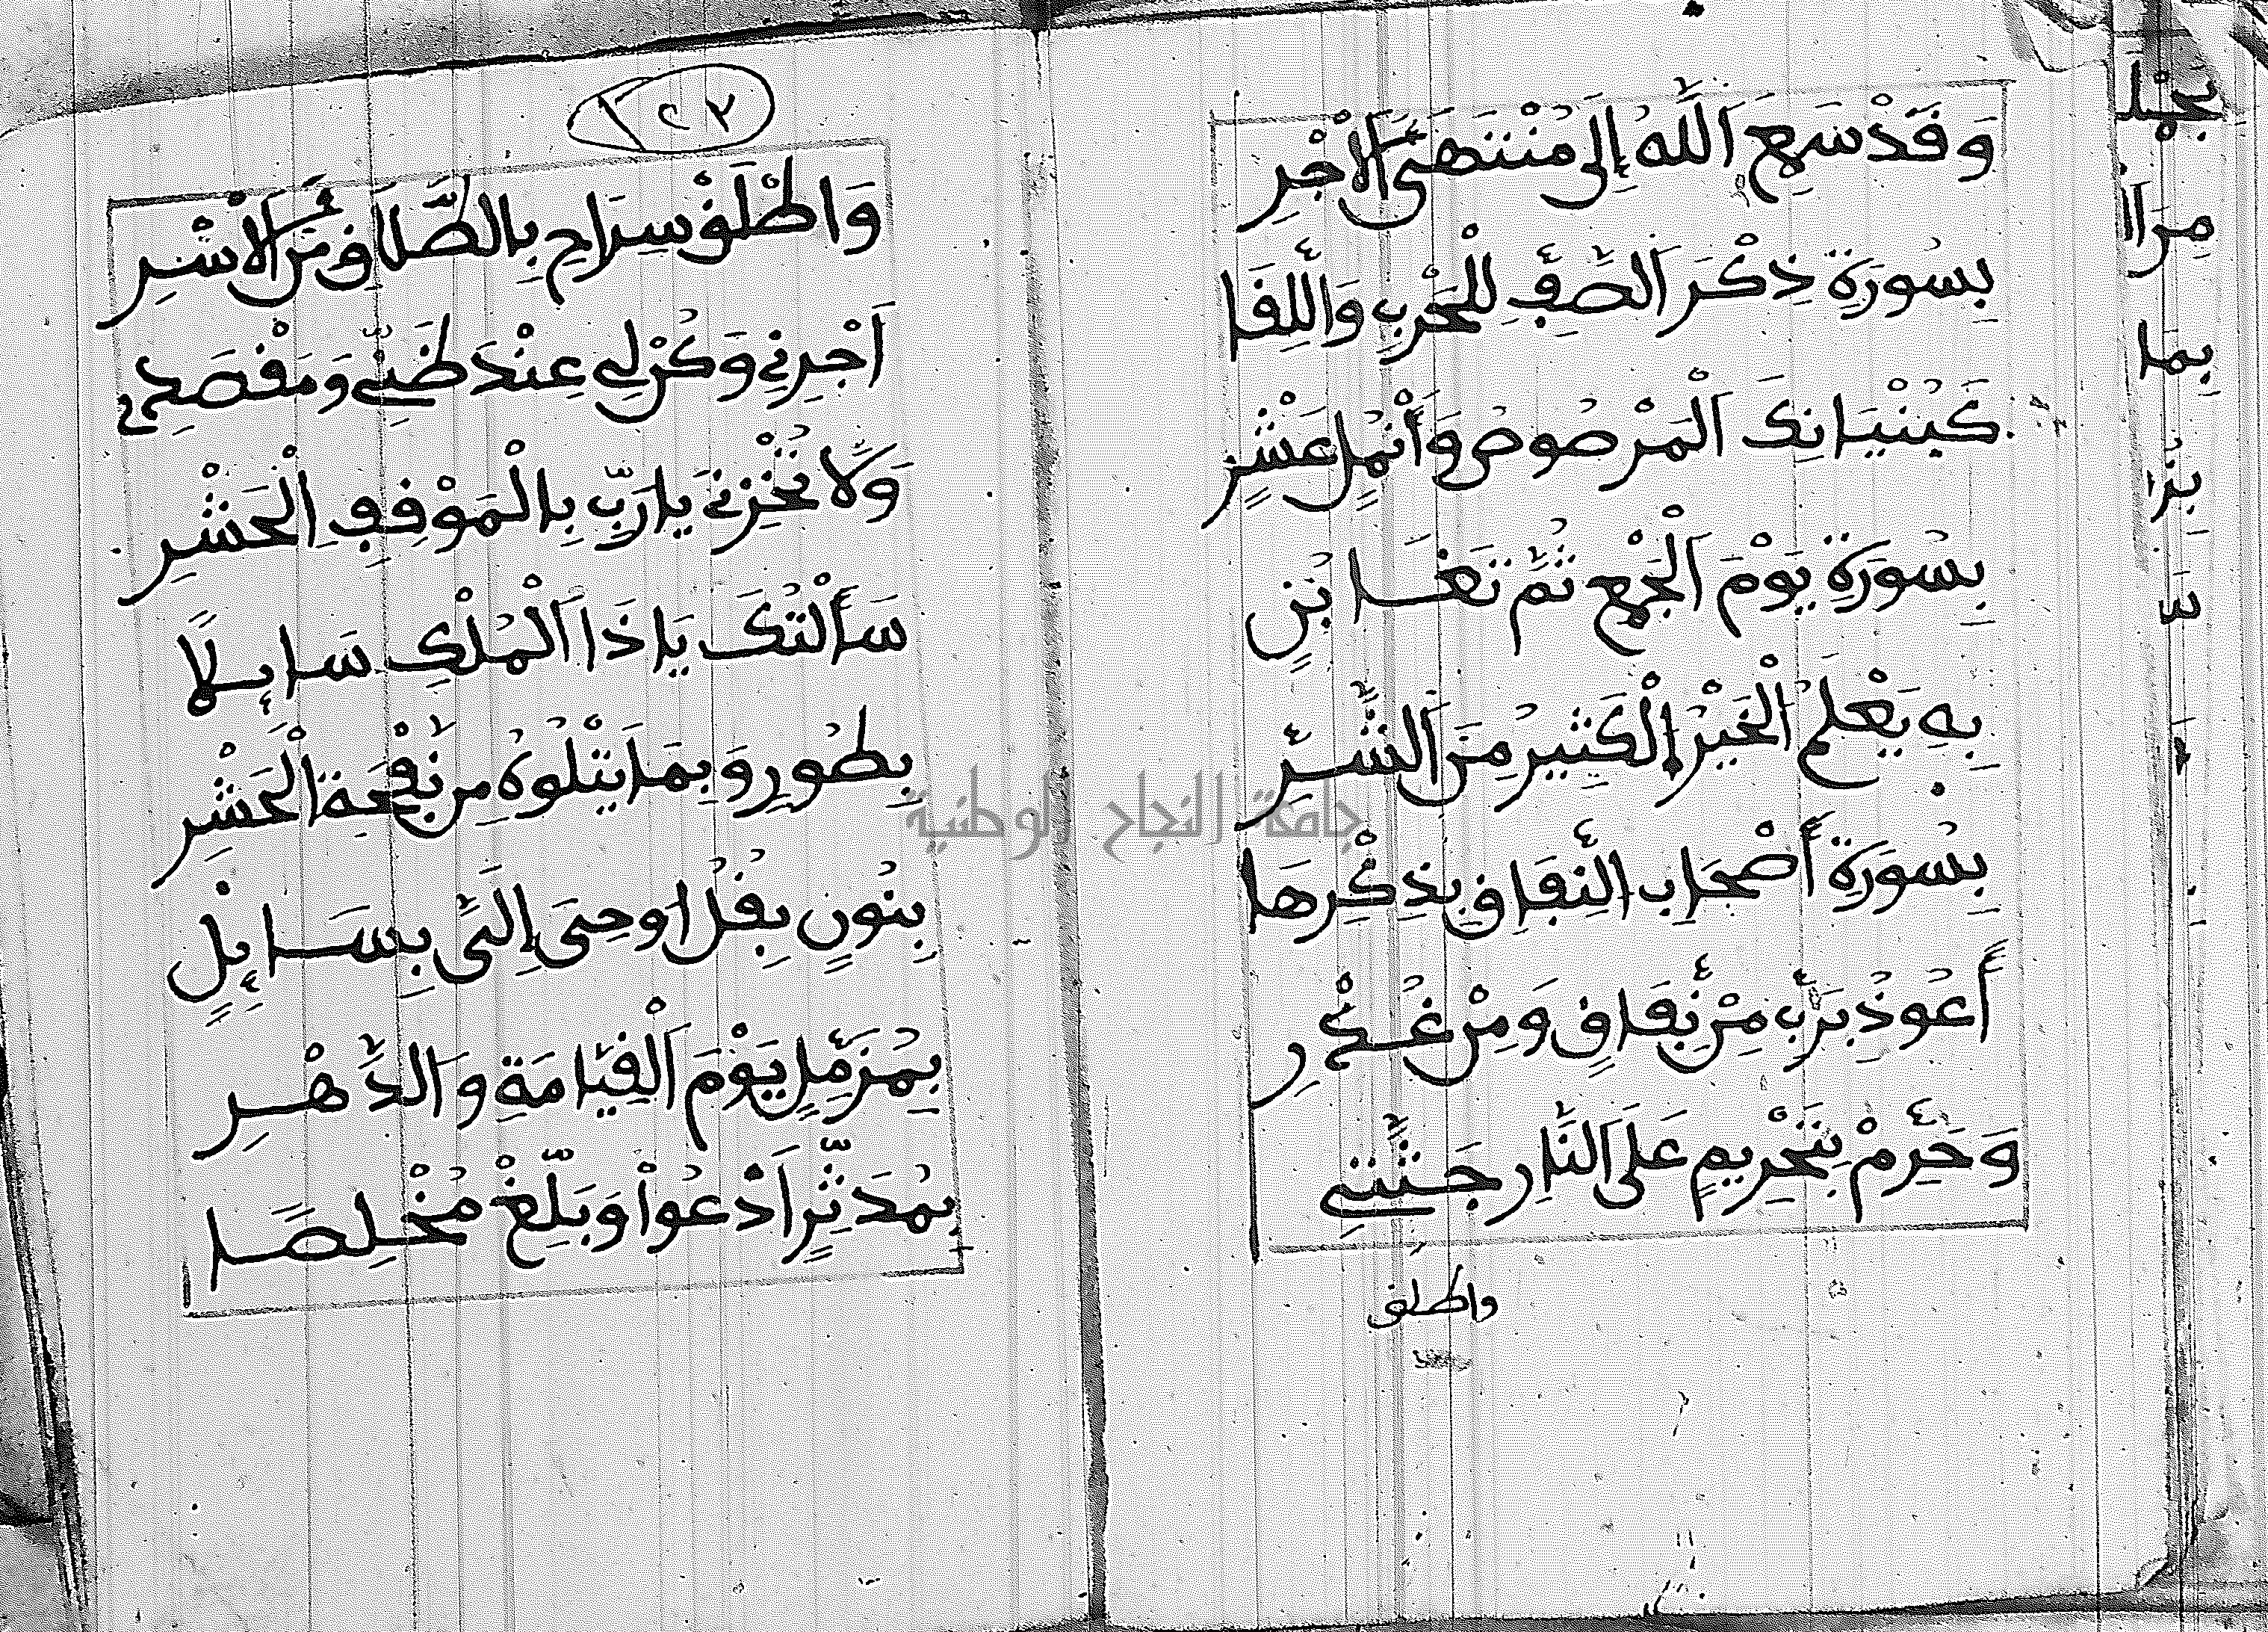 وَقَدْ سَمِعَ اَللَّهُ إِلَى مُنْتَهَى اَلْأَجْرِ
بِسُورَةِ ذِكْرَ اَلصَّفِّ لِلْحَرْبِ وَاللِّقَا
كَبُنْيَانِكَ اَلْمَرْصُوصُ وَأَنْمُلِ عَشْرٍ
بِسُورَةِ يَوْمَ اَلْجَمْعِ ثُمَّ تَغَابُنٍ
بِهِ يَعْلَمُ اَلْخَيْرُ اَلْكَثِيرُ مِنَ اَلشَّرِّ
بِسُورَةِ أَصْحَابِ اَلنِّفَاقِ بِذِكْرِهَا
أَعُوذُ بِرَبِّ مِنْ نِفَاقٍ وَمِنْ
وَحَرِّمْ بِتَحْرِيمٍ عَلَى اَلنَّارِ جَنَّتِي
واطلق
١٢٢
وَاطْلَقْ سِرَاحِ بِالطَّلَاقِ مَنَ اَلْأَسْرِ
اَجْرِنِي وَكُنْ لِي عِنْدَ ظَنِّي وَمَقْصَدِي
وَلَا تُخْزِنِي يَارَبِّ بِالْمَوْقِفِ اِلْحَشْرِ
سَأَلْتُكَ يَاذَا اَلْمُلْكِ سَايِلًا
بِطُورِ وَبِمَا يَتْلُوهُ مِن نَفْحَةِ اَلْحَشْرِ
بِنُونٍ بِقُلْ اُوحِيَ إِلَيَّ بِسَايِلٍ
بِمُزَّمِّلٍ يَوْمَ اَلْقِيَامَةِ وَالدَّهْرِ
بِمُدَثِّرٍ اَدْعُوا وَبَلِّغْ مُخْلِصًا
جامعة النجاح الوطنية